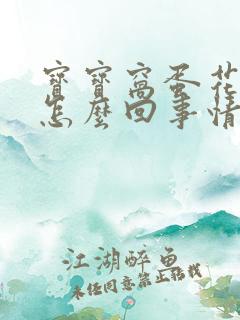 寶寶窩蛋花
怎麼回事情
江湖醉魚
未经同意禁止转载